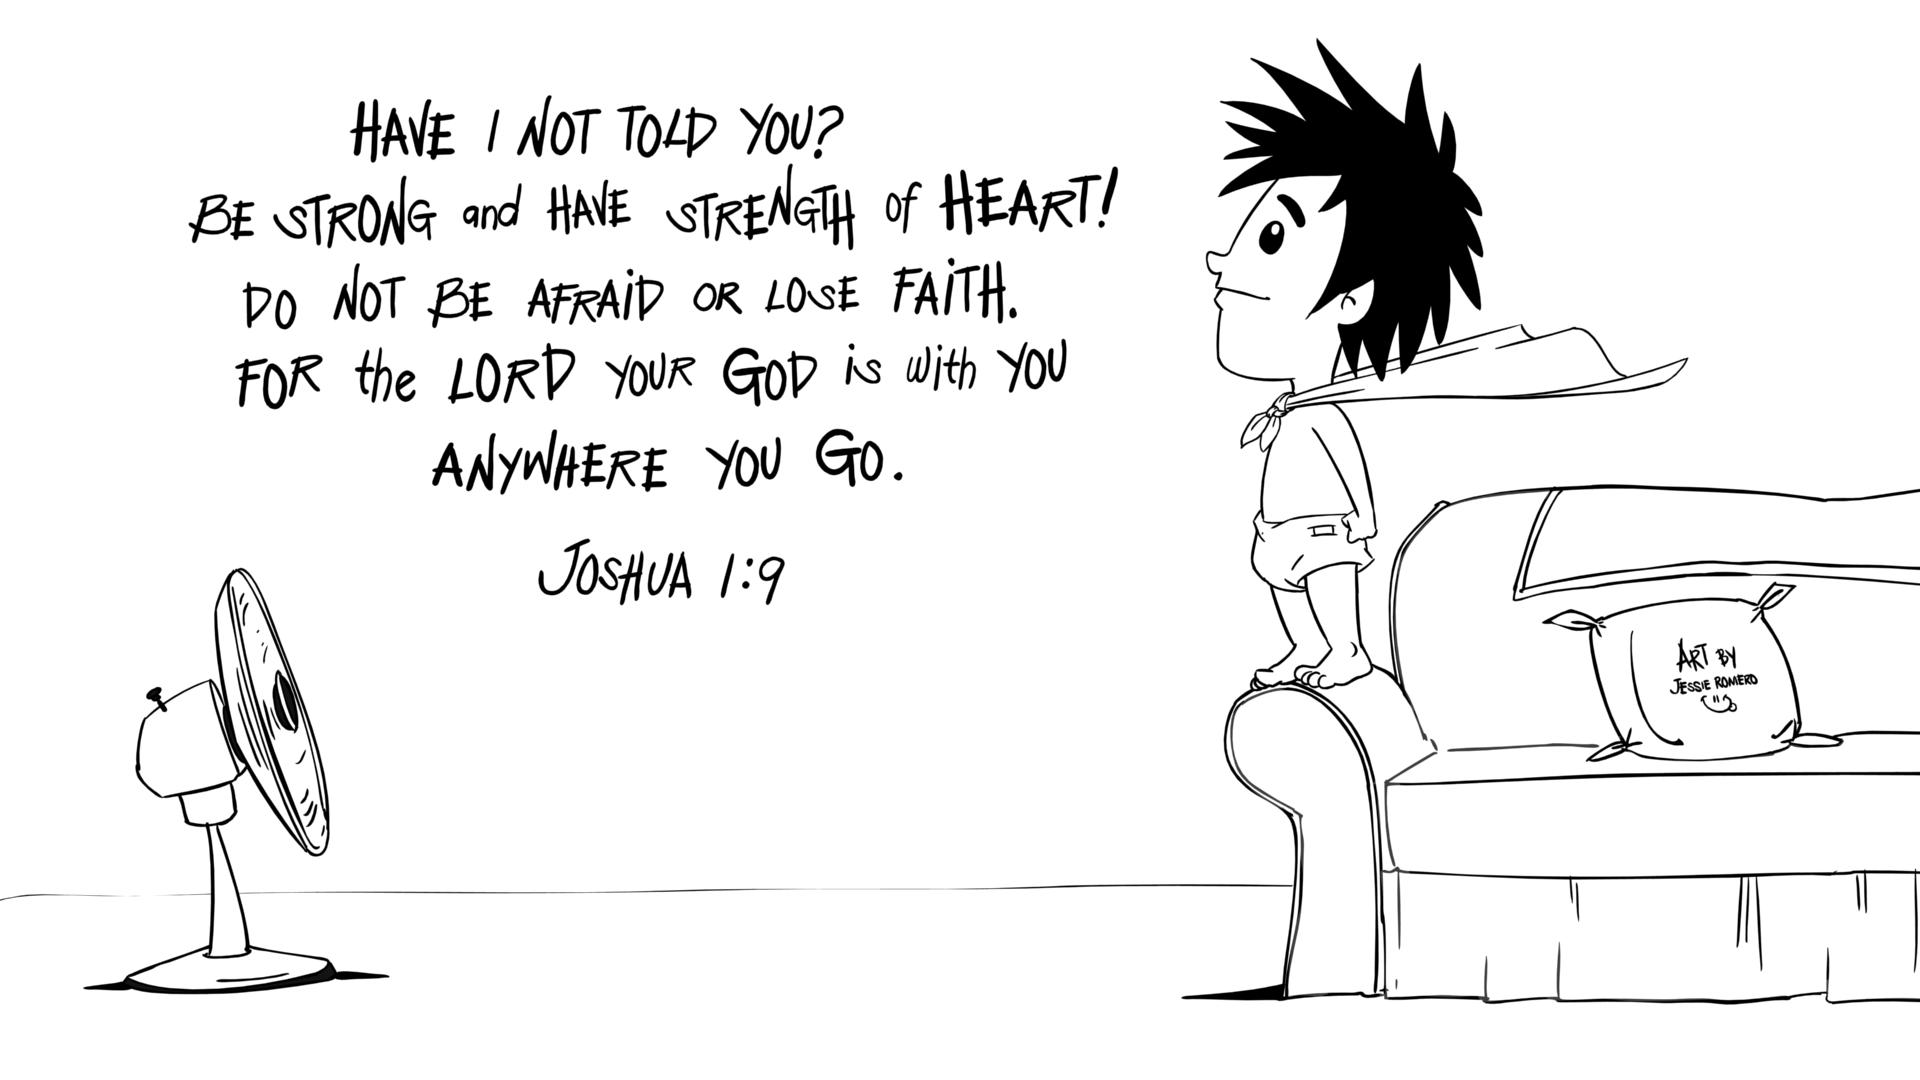 HAVE I NOT TOLD YOU?
BE STRONG and HAVE STRENGTH of HEART!
DO NOT BE AFRAID OR LOSE FAITH.
FOR the LORD YOUR GOD is with YOU
ANYWHERE YOU GO.
JOSHUA 1:9
ART BY
JESSIE ROMERO